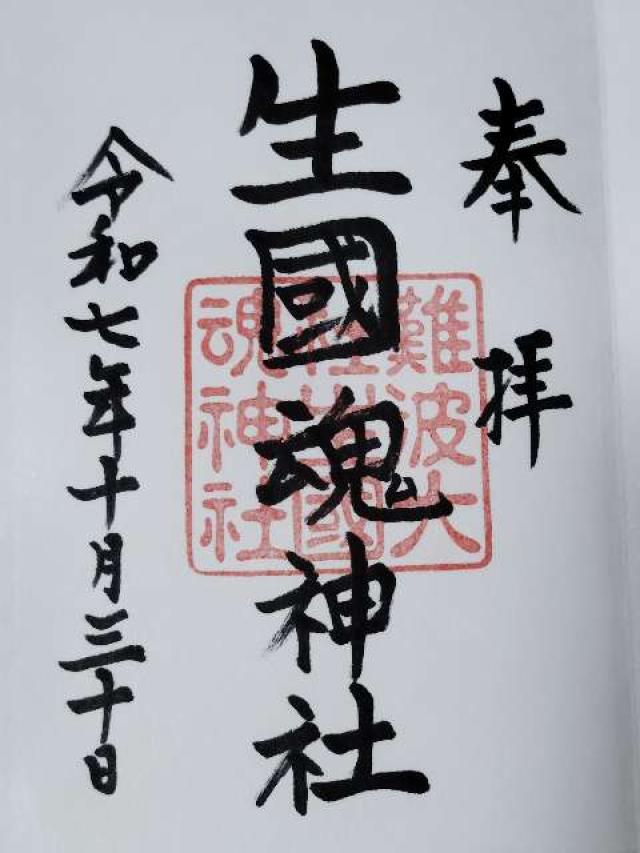 奉拝
生國魂神社
難波大
社生國
魂神社
令和七年十月三十日